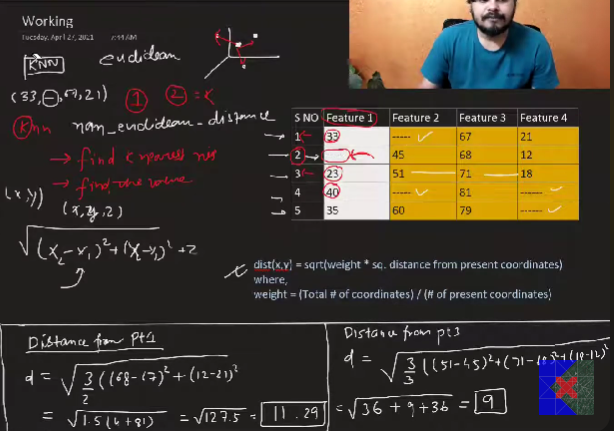 Working
Tuesday, April 27, 2021 7:44 AM
KNN euclidean
(33, —, 67, 21) 1 2 = K
Knn nan_euclidean_distance
→ find K nearest
→ find the
(x, y)
(x, y, z)
√(x₂-x₁)²+(y₂-y₁)²+z
S NO Feature 1 Feature 2 Feature 3 Feature 4
1 33 ----- 67 21
2 45 68 12
3 23 51 71 18
4 40 ----- 81 ------
5 35 60 79 ------
dist(x,y) = sqrt(weight * sq. distance from present coordinates)
where,
weight = (Total # of coordinates) / (# of present coordinates)
Distance from Pt1
d = √3/2 ((68-67)²+(12-21)²
= √1.5(4+81) = √127.5 = 11.29
Distance from pt3
d = √3/3 ((51-45)²+(71-68)²+(18-12)²
= √36+9+36 = 9